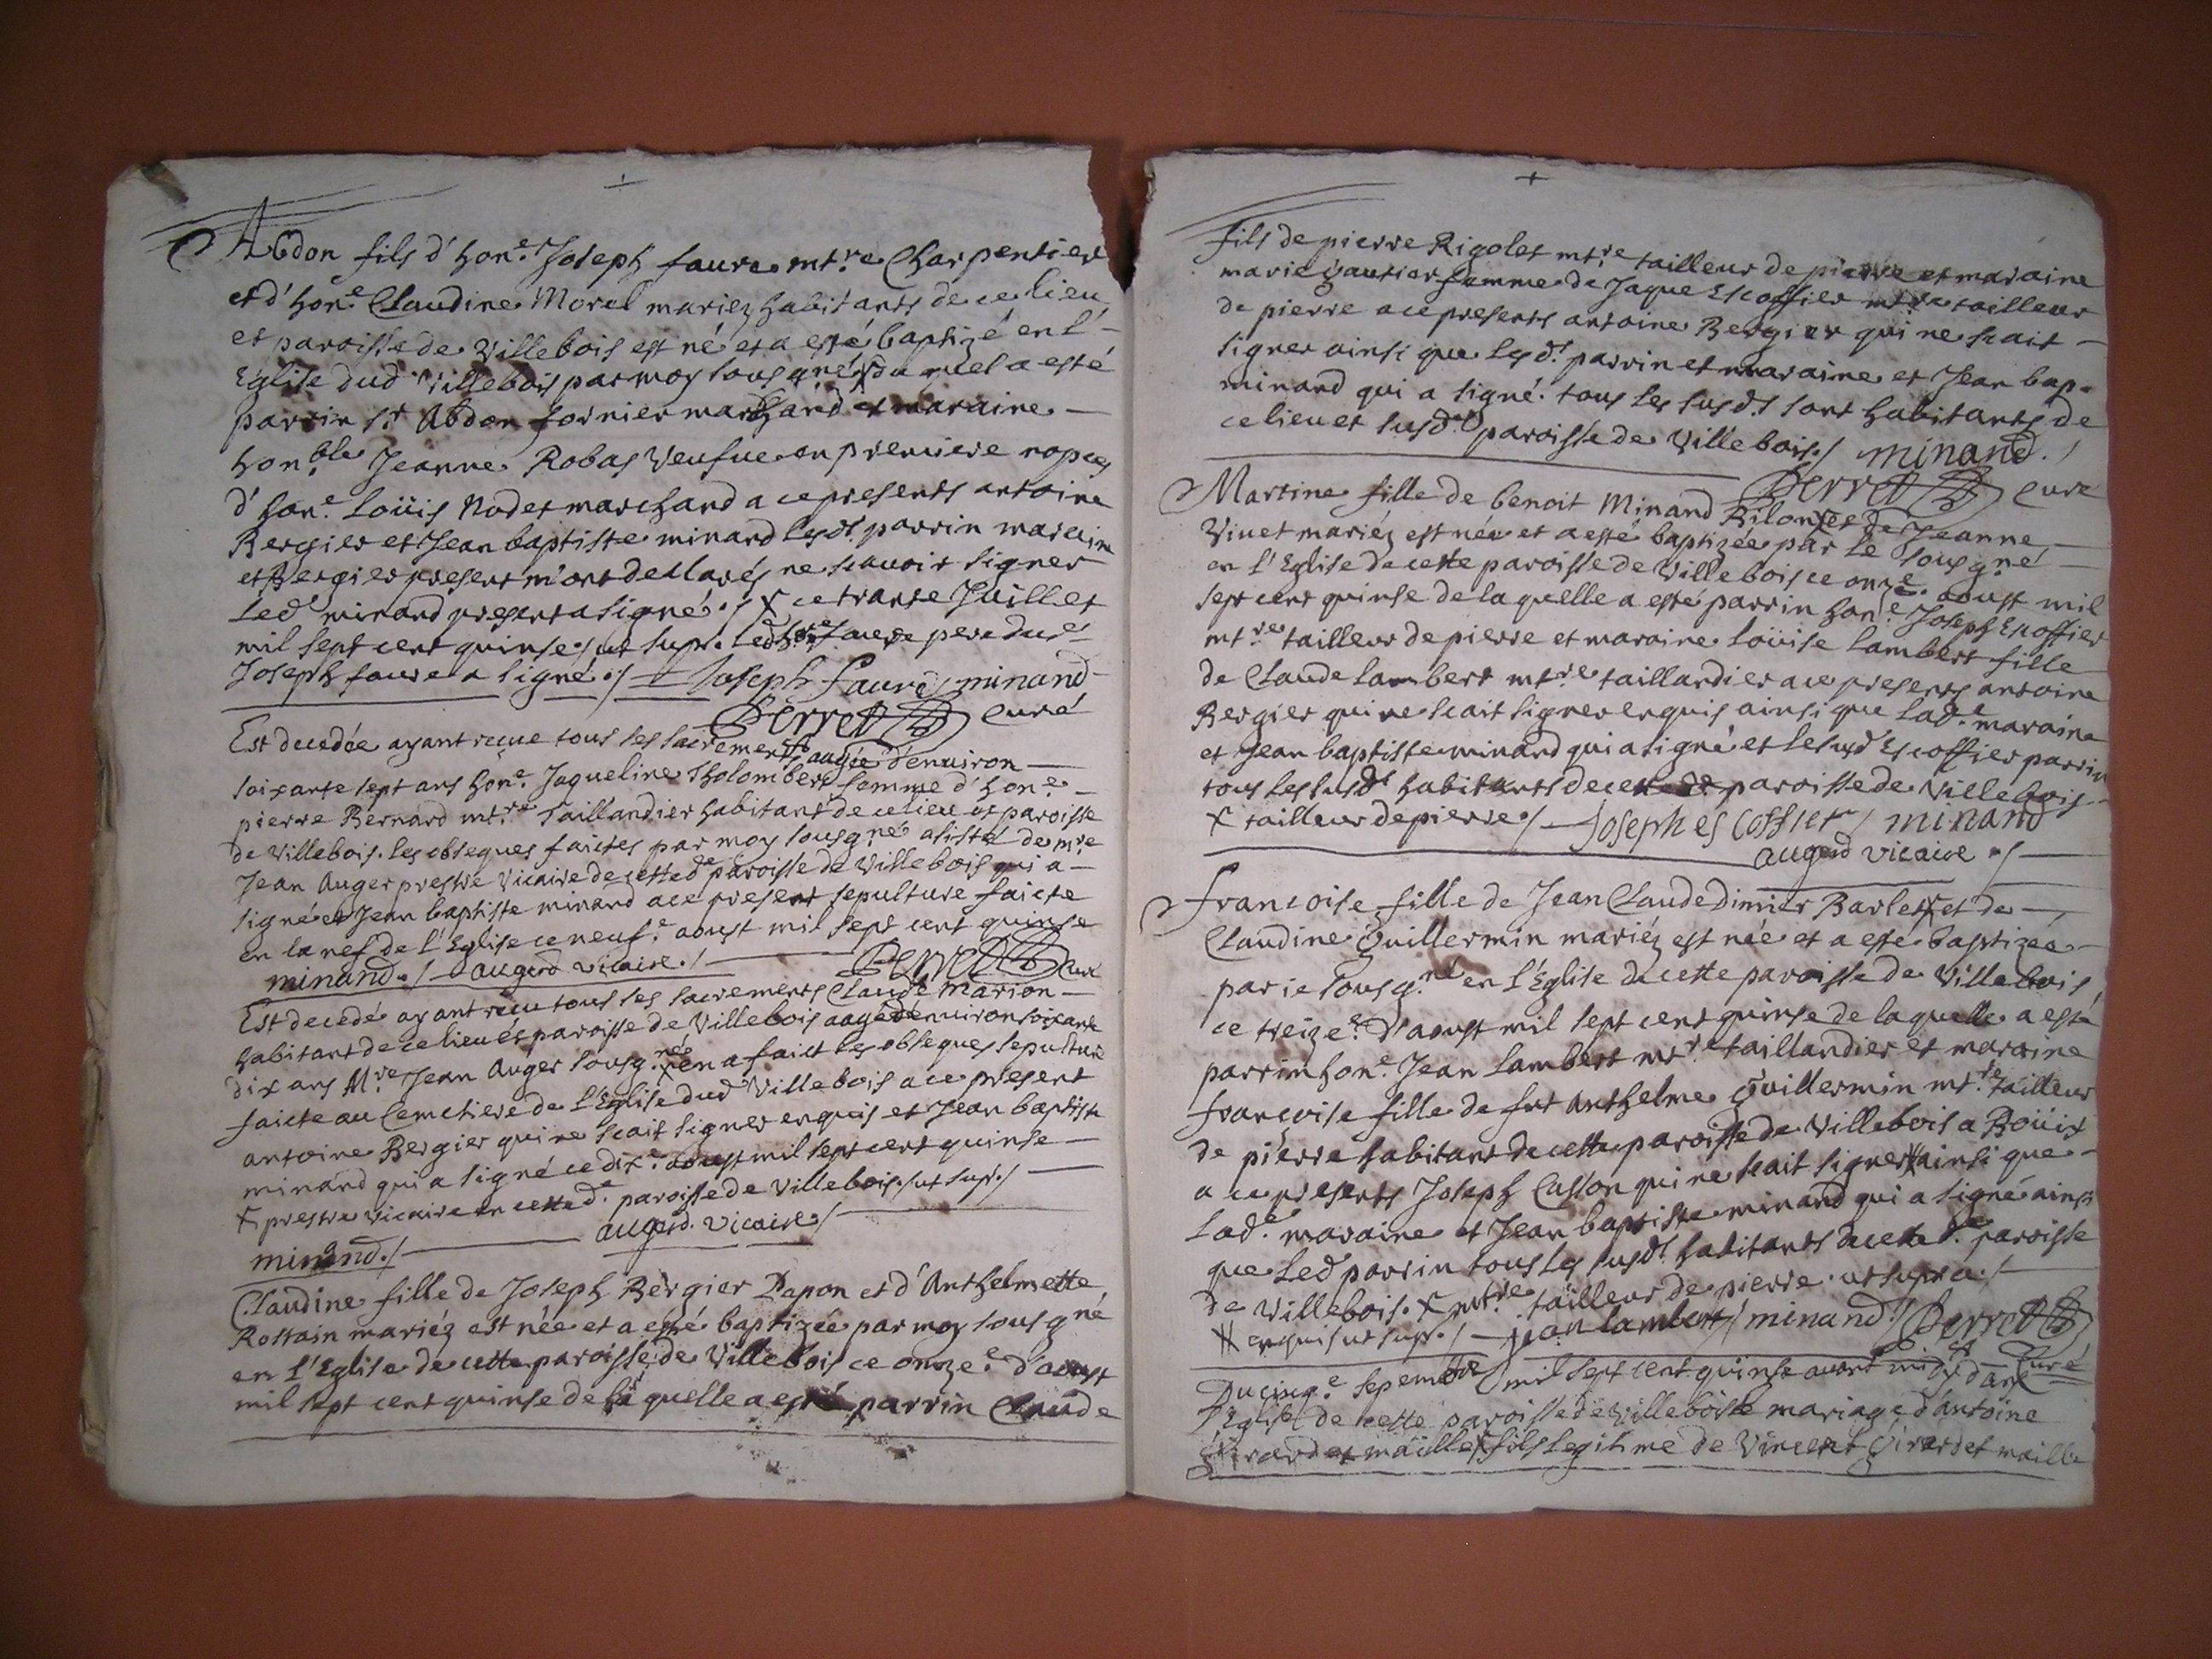 Abdon fils d'hon.e Joseph faure mt.re Charpentier
et d'hon.e Claudine Morel mariez habitants de ce lieu
et paroisse de Villebois est né et a esté baptizé en l'
Eglise dud. Villebois par moy sousgné X du quel a esté
parrin s.r Abdon fornier marchand et maraine
hon.ble Jeanne Robas Veufue en premiere nopces
d'hon.e Loüis Nodet marchand a ce presents antoine
Bergier et Jean baptiste minand lesd.s parrin maraine
et Bergier present m'ont declarés ne scavoir signer
Led.t minand present a signé./ X ce trante Juillet
mil sept cent quinse./ ut sup. Led. faure pere dud.
Joseph faure a signé./ Joseph Faure / minand
Perret Curé
Est decedée ayant reçue tous ses sacrements augée d'enuiron
soixante sept ans hon.e Jaqueline Tholombert femme d'hon.e
pierre Bernard mt.re Taillandier habitant de ce lieu et paroisse
de Villebois. les obseques faictes par moy sousg.né asisté de m.re
Jean Auger prestre Vicaire de cetted.e paroisse de Villebois qui a
signé et Jean baptiste minand a ce present sepulture faicte
en la nef de l'Eglise ce neuf.e aoust mil sept cent quinse
minand./ augerd vicaire./ Perret Curé
Est decedé ayant reçeu tous ses sacrements Claude Marion
habitant de ce lieu et paroisse de Villebois aagé d'enuiron soixante
dix ans M.re Jean Auger sousg.né X en a faict les obseques sepulture
faicte au Cemetiere de L'Eglise dud. Villebois a ce present
antoine Bergier qui ne scait signer enquis et Jean baptiste
minand qui a signé ce dix.e aoust mil sept cent quinse
X prestre vicaire en cetted.e paroisse de Villebois./ ut sup./
minand./ augerd. vicaire /
Claudine fille de Joseph Bergier Papon et d'Anthelmette
Rostain mariéz est née et a esté baptizée par moy sousgné
en l'Eglise de cette paroisse de Villebois ce onze.e d'aoust
mil sept cent quinse de la quelle a esté parrin Claude
fils de pierre Rigolet mt.re tailleur de pierre et maraine
marie gautier femme de Jaque Escoffier mt.re tailleur
de pierre a ce presents antoine Bergier qui ne scait
signer ainsi que lesd.s parrin et maraine et Jean bap.
minand qui a signé. tous les susd.s sont habitants de
ce lieu et susd. paroisse de Villebois./ minand./
Perret Curé
Martine fille de benoit Minand Bilon X et de Jeanne
Vinet mariéz est née et a esté baptizée par le sousgné
en l'Eglise de cette paroisse de Villebois ce onze.e aoust mil
sept cent quinse de la quelle a esté parrin hon.e Joseph Escoffier
mt.re tailleur de pierre et maraine Loüise Lambert fille
de Claude Lambert mt.re taillandier a ce presents antoine
Bergier qui ne scait signer enquis ainsi que lad.e maraine
et Jean baptiste minand qui a signé et le susd. Escoffier parrin
tous les susd.s habitants de paroisse de Villebois
X tailleur de pierre./ Joseph escoffier / minand
augerd vicaire ./
Francoise fille de Jean Claude Dimier Barlet X et de
Claudine Guillermin mariéz est née et a esté baptizée
par ie sousg.né en l'Eglise de cette paroisse de Villebois
ce treize.e d'aoust mil sept cent quinse de la quelle a esté
parrin hon.e Jean Lambert mt.re taillandier et maraine
francoise fille de fut Anthelme Guillermin mt.re tailleur
de pierre habitant de cette paroisse de Villebois a Boüix
a ce presents Joseph Casson qui ne scait signer X ainsi que
Lad.e maraine et Jean baptiste minand qui a signé ainsi
que Led parrin tous les susd.s habitants de cette d.e paroisse
de Villebois. X mt.re tailleur de pierre. ut supra./
X enquis ut sup./ jean lambert / minand / Perret
Curé
Du cinq.e sepembre mil sept cent quinze auant midy dans
l'Eglise de cette paroisse de Villebois le mariage d'antoine
Girardet maille X fils legitime de Vincent Girardet maille